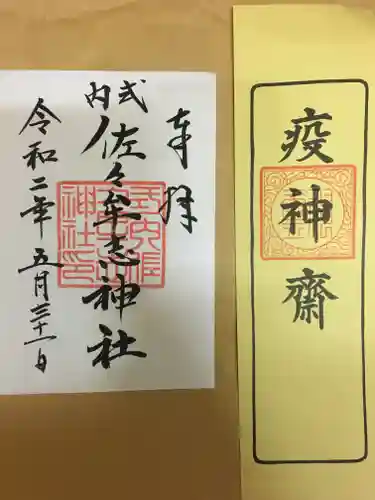 奉拝
式内
佐々牟志神社
令和二年五月三十一日
疫神齋